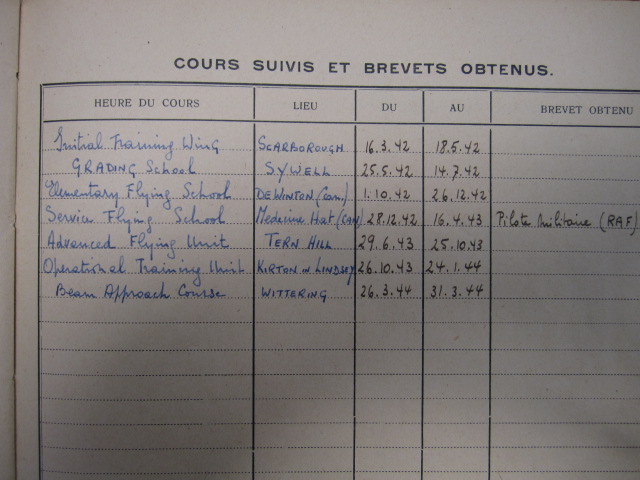 COURS SUIVIS ET BREVETS OBTENUS.
HEURE DU COURS LIEU DU AU BREVET OBTENU
Initial Training Wing SCARBOROUGH 16.3.42 18.5.42
GRADING School SYWELL 25.5.42 14.7.42
Elementary Flying School DE WINTON (Can) 1.10.42 26.12.42
Service Flying School Medicine Hat (Can) 28.12.42 16.4.43 Pilote Militaire (RAF)
Advanced Flying Unit TERN HILL 29.6.43 25.10.43
Operational Training Unit KIRTON in LINDSEY 26.10.43 24.1.44
Beam Approach Course WITTERING 26.3.44 31.3.44